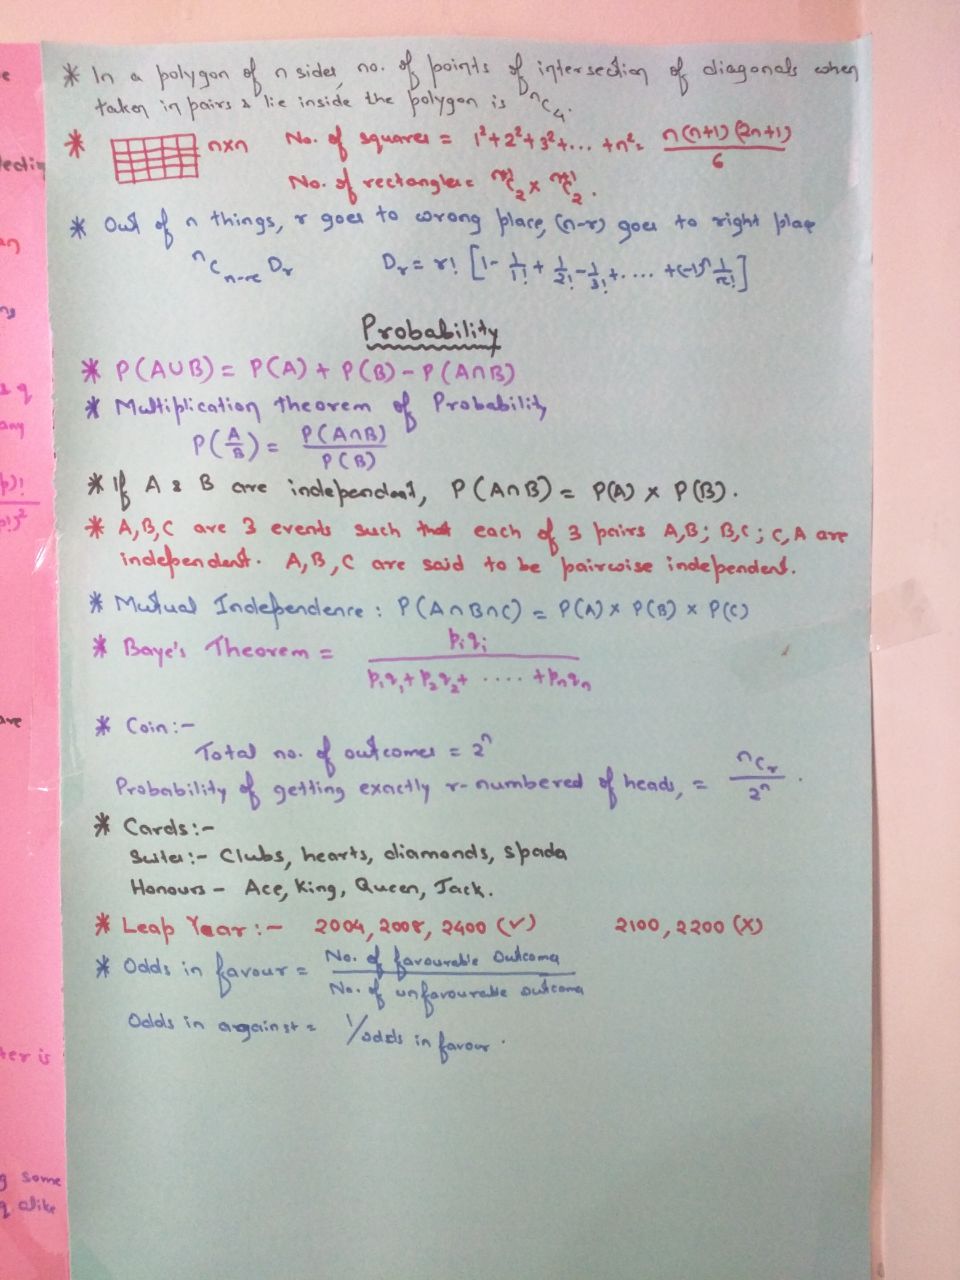 * In a polygon of n sides, no. of points of intersection of diagonals when
taken in pairs & lie inside the polygon is ⁿC₄.
* n×n No. of squares = 1²+2²+3²+... +n² = n(n+1)(2n+1)/6
No. of rectangles = ⁿ⁺¹C₂ × ⁿ⁺¹C₂.
* Out of n things, r goes to wrong place, (n-r) goes to right place
ⁿCₙ₋ᵣ Dᵣ Dᵣ = r! [1 - 1/1! + 1/2! - 1/3! + .... +(-1)ʳ 1/r!]
Probability
* P(A∪B) = P(A) + P(B) - P(A∩B)
* Multiplication theorem of Probability
P(A/B) = P(A∩B)/P(B)
* If A & B are independent, P(A∩B) = P(A) × P(B).
* A,B,C are 3 events such that each of 3 pairs A,B; B,C; C,A are
independent. A,B,C are said to be pairwise independent.
* Mutual Independence : P(A∩B∩C) = P(A) × P(B) × P(C)
* Baye's Theorem = pᵢqᵢ/(p₁q₁+p₂q₂+ .... +pₙqₙ)
* Coin :-
Total no. of outcomes = 2ⁿ
Probability of getting exactly r-numbered of heads, = ⁿCᵣ/2ⁿ.
* Cards :-
Suites :- Clubs, hearts, diamonds, spada
Honours - Ace, King, Queen, Jack.
* Leap Year :- 2004, 2008, 2400 (✓) 2100, 2200 (X)
* Odds in favour = No. of favourable Outcome/No. of unfavourable outcome
Odds in against = 1/odds in favour.
any
ter is
some
alike